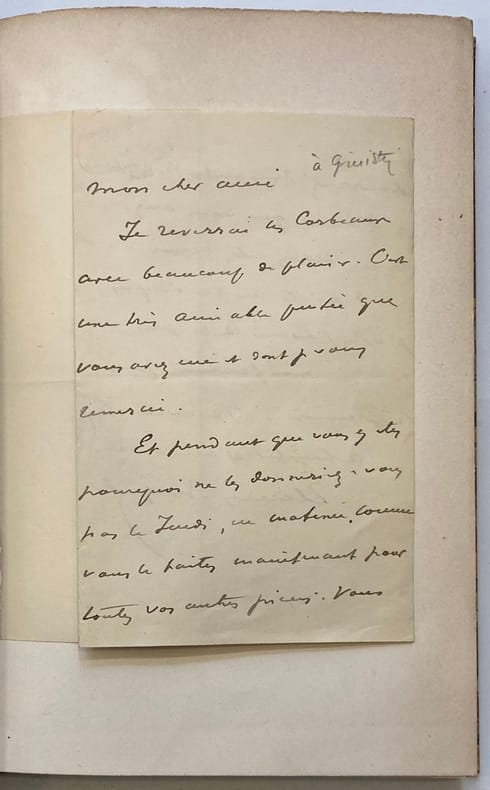 à Ginisty
mon cher ami
Je reverrai les Corbeaux
avec beaucoup de plaisir. C'est
une très aimable pensée que
vous avez eue et dont je vous
remercie.
Et pendant que vous y êtes
pourquoi ne les donneriez-vous
pas le Jeudi, en matinée, comme
vous le faites maintenant pour
toutes vos autres pièces. Vous